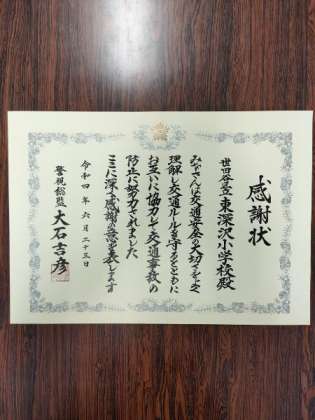 感謝状
世田谷区立東深沢小学校殿
みなさんは交通安全の大切さをよく
理解し交通ルールを守るとともに
お互いに協力して交通事故の
防止に努力されました
ここに深く感謝の意を表します
令和四年六月二十三日
警視総監 大石吉彦